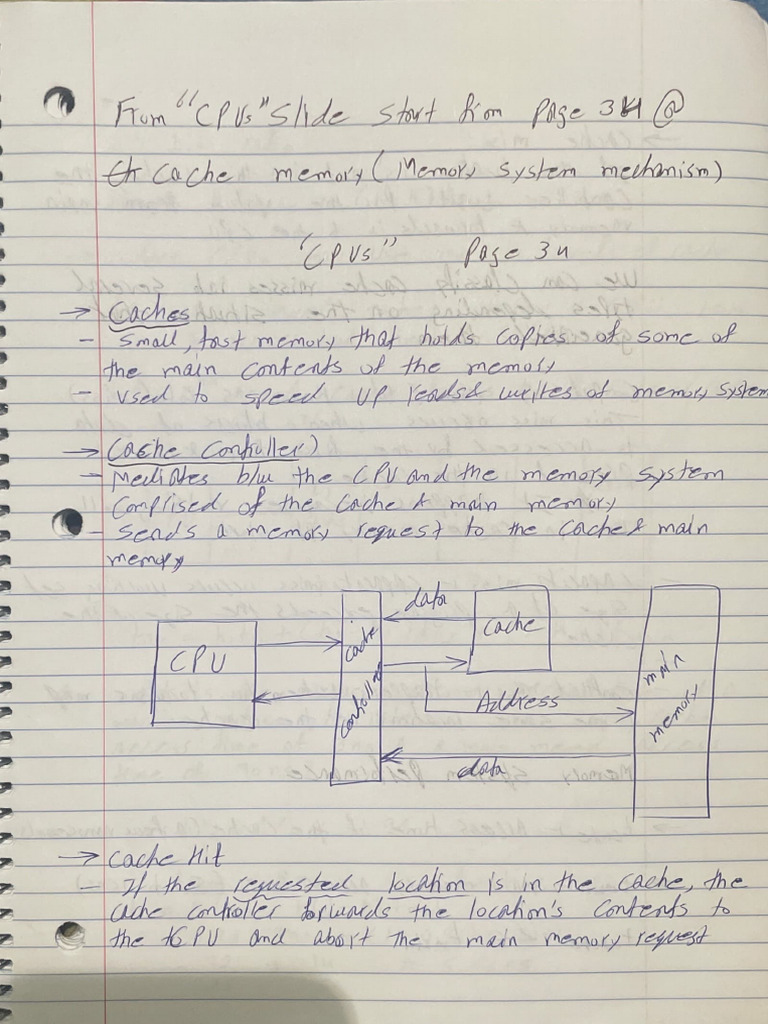 From "CPUs" Slide start from page 34 @
Cache memory (Memory system mechanism)
"CPUs" Page 34
→ Caches
- Small, fast memory that holds copies of some of
the main contents of the memory
- Used to speed up reads & writes of memory system
→ Cache Controller
- Mediates b/w the CPU and the memory system
Comprised of the Cache & main memory
- Sends a memory request to the Cache & main
memory
data
Cache
CPU
Cache
Controller
main
memory
Address
data
→ Cache Hit
- If the requested location is in the cache, the
cache controller forwards the location's Contents to
the CPU and abort the main memory request